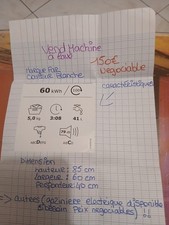 Vend Machine
à laver
150€
Négociable
marque Far
Couleur Blanche
caractéristiques
60 kWh / 100
5,0 kg
3:08
41 L
ABCDEFG
ABCD
Dimension
hauteur : 85 cm
largeur : 60 cm
Profondeur : 40 cm
→ autres (gazinière électrique disponible